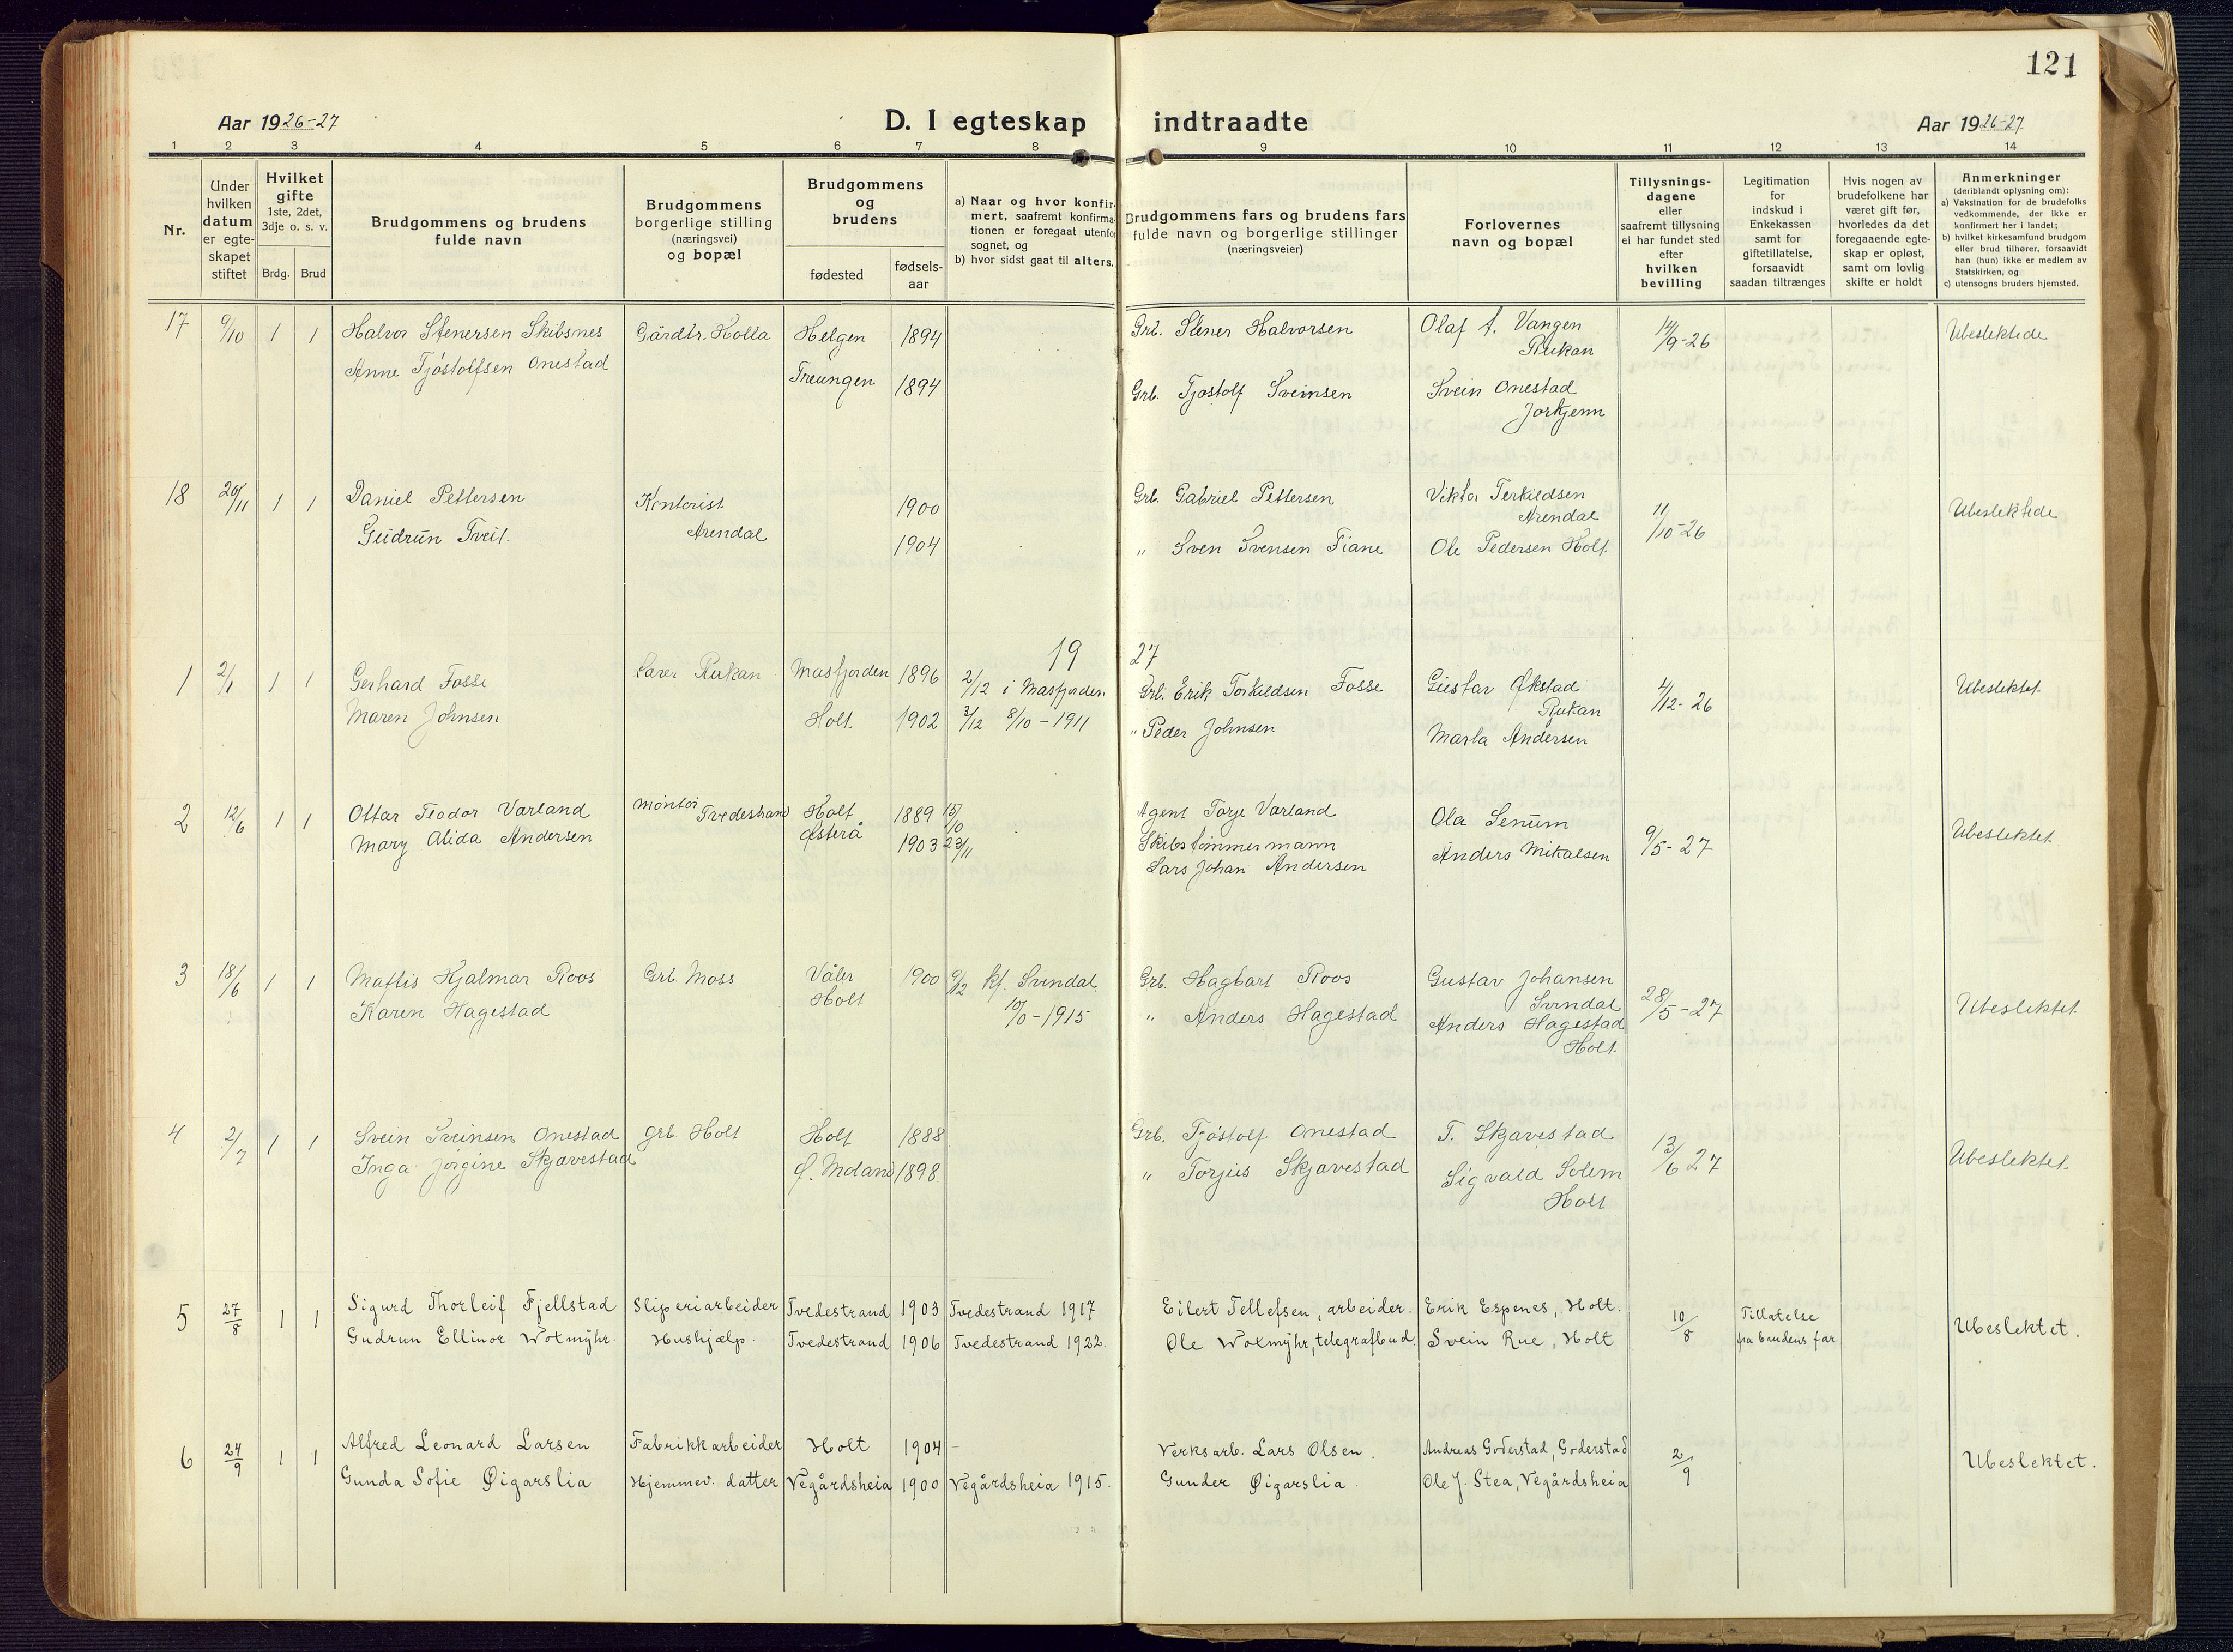 121
Aar 1926-27
D. I egteskap indtraadte
Aar 1926-27
1 2 3 4 5 6 7 8 9 10 11 12 13 14
Nr.
Under hvilken datum er egteskapet stiftet
Hvilket gifte 1ste, 2det, 3dje o. s. v.
Brdg. Brud
Brudgommens og brudens fulde navn
Brudgommens borgerlige stilling (næringsvei) og bopæl
Brudgommens og brudens
fødested
fødsels-aar
a) Naar og hvor konfirmert, saafremt konfirmationen er foregaat utenfor sognet, og
b) hvor sidst gaat til alters.
Brudgommens fars og brudens fars fulde navn og borgerlige stillinger (næringsveier)
Forlovernes navn og bopæl
Tillysningsdagene eller saafremt tillysning ei har fundet sted efter hvilken bevilling
Legitimation for indskud i Enkekassen samt for giftetillatelse, forsaavidt saadan tiltrænges
Hvis nogen av brudefolkene har været gift før, hvorledes da det foregaaende egteskap er opløst, samt om lovlig skifte er holdt
Anmerkninger (deriblandt oplysning om):
a) Vaksination for de brudefolks vedkommende, der ikke er konfirmert her i landet;
b) hvilket kirkesamfund brudgom eller brud tilhører, forsaavidt han (hun) ikke er medlem av Statskirken, og
c) utensogns bruders hjemsted.
17 9/10 1 1 Halvor Stenersen Skibsnes Gårdbr. Holla Helgen 1894 Grb. Stener Halvorsen Olaf A. Vangen Rukan 14/9-26 Ubeslektede
Anne Tjöstolfsen Onestad Treungen 1894 Grb. Tjøstolf Sveinsen Svein Onestad Jorkjenn
18 20/11 1 1 Daniel Pettersen Kontorist Arendal 1900 Grb. Gabriel Pettersen Viktor Terkildsen Arendal 11/10-26 Ubeslektede
Gudrun Tveit. 1904 " Sven Svensen Fiane Ole Pedersen Holt
1927
1 2/1 1 1 Gerhard Fosse Rukan Masfjorden 1896 2/12 i Masfjorden Grb. Erik Torkildsen Fosse Gustav Økstad Rukan 4/12-26 Ubeslektet
Maren Johnsen Holt 1902 3/12 8/10-1911 " Peder Johnsen Marta Andersen
2 12/6 1 1 Ottar Teodor Varland Montör Tvedestrand Holt 1889 15/10 Agent Torje Varland Ola Senum 9/5-27 Ubeslektet
Mary Alida Andersen Østerå 1903 23/11 Skibstömmermann Lars Johan Andersen Anders Mikalsen
3 18/6 1 1 Mattis Hjalmar Roos Grb. Moss Våler 1900 9/12 kf. Svindal. Grb. Hagbart Roos Gustav Johansen Svindal 28/5-27 Ubeslektet
Karen Hagestad Holt 10/10-1915 " Anders Hagestad Anders Hagestad Holt
4 2/7 1 1 Svein Sveinsen Onestad Grb Holt Holt 1888 Grb. Tjöstolf Onestad T. Skjævestad 13/6 27 Ubeslektet
Inga Jörgine Skjævestad Ø. Moland 1898 " Torjus Skjævestad Sigvald Solem Holt
5 27/8 1 1 Sigurd Thorleif Fjellstad Sliperiarbeider Tvedestrand 1903 Tvedestrand 1917 Eilert Tellefsen, arbeider. Erik Espenes, Holt. 10/8 Tillatelse fra brudens far. Ubeslektet.
Gudrun Ellinor Woxmyhr. Hushjælp. Tvedestrand 1906 Tvedestrand 1922. Ole Woxmyhr, telegrafbud. Svein Rue, Holt
6 24/9 1 1 Alfred Leonard Larsen Fabrikkarbeider Holt 1904 - Verksarb. Lars Olsen. Andreas Goderstad, Goderstad 2/9 Ubeslektet.
Gunda Sofie Øigarslia Hjemmev. datter Vegårdsheia 1900 Vegårdsheia 1915. Gunder Øigarslia. Ole J. Stea, Vegårdsheia